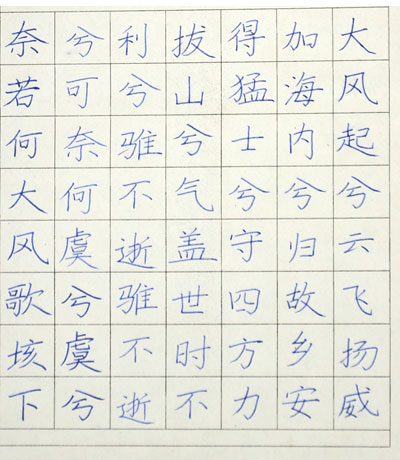 大风起兮云飞扬威
加海内兮归故乡安
得猛士兮守四方力
拔山兮气盖世时不
利兮骓不逝骓不逝
兮可奈何虞兮虞兮
奈若何大风歌垓下